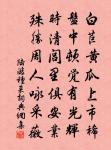 白苣黄瓜上市稀
盤中頓覺有光輝
時清閭里俱安業
殊勝周人詠采薇
陸游種菜詞典網集